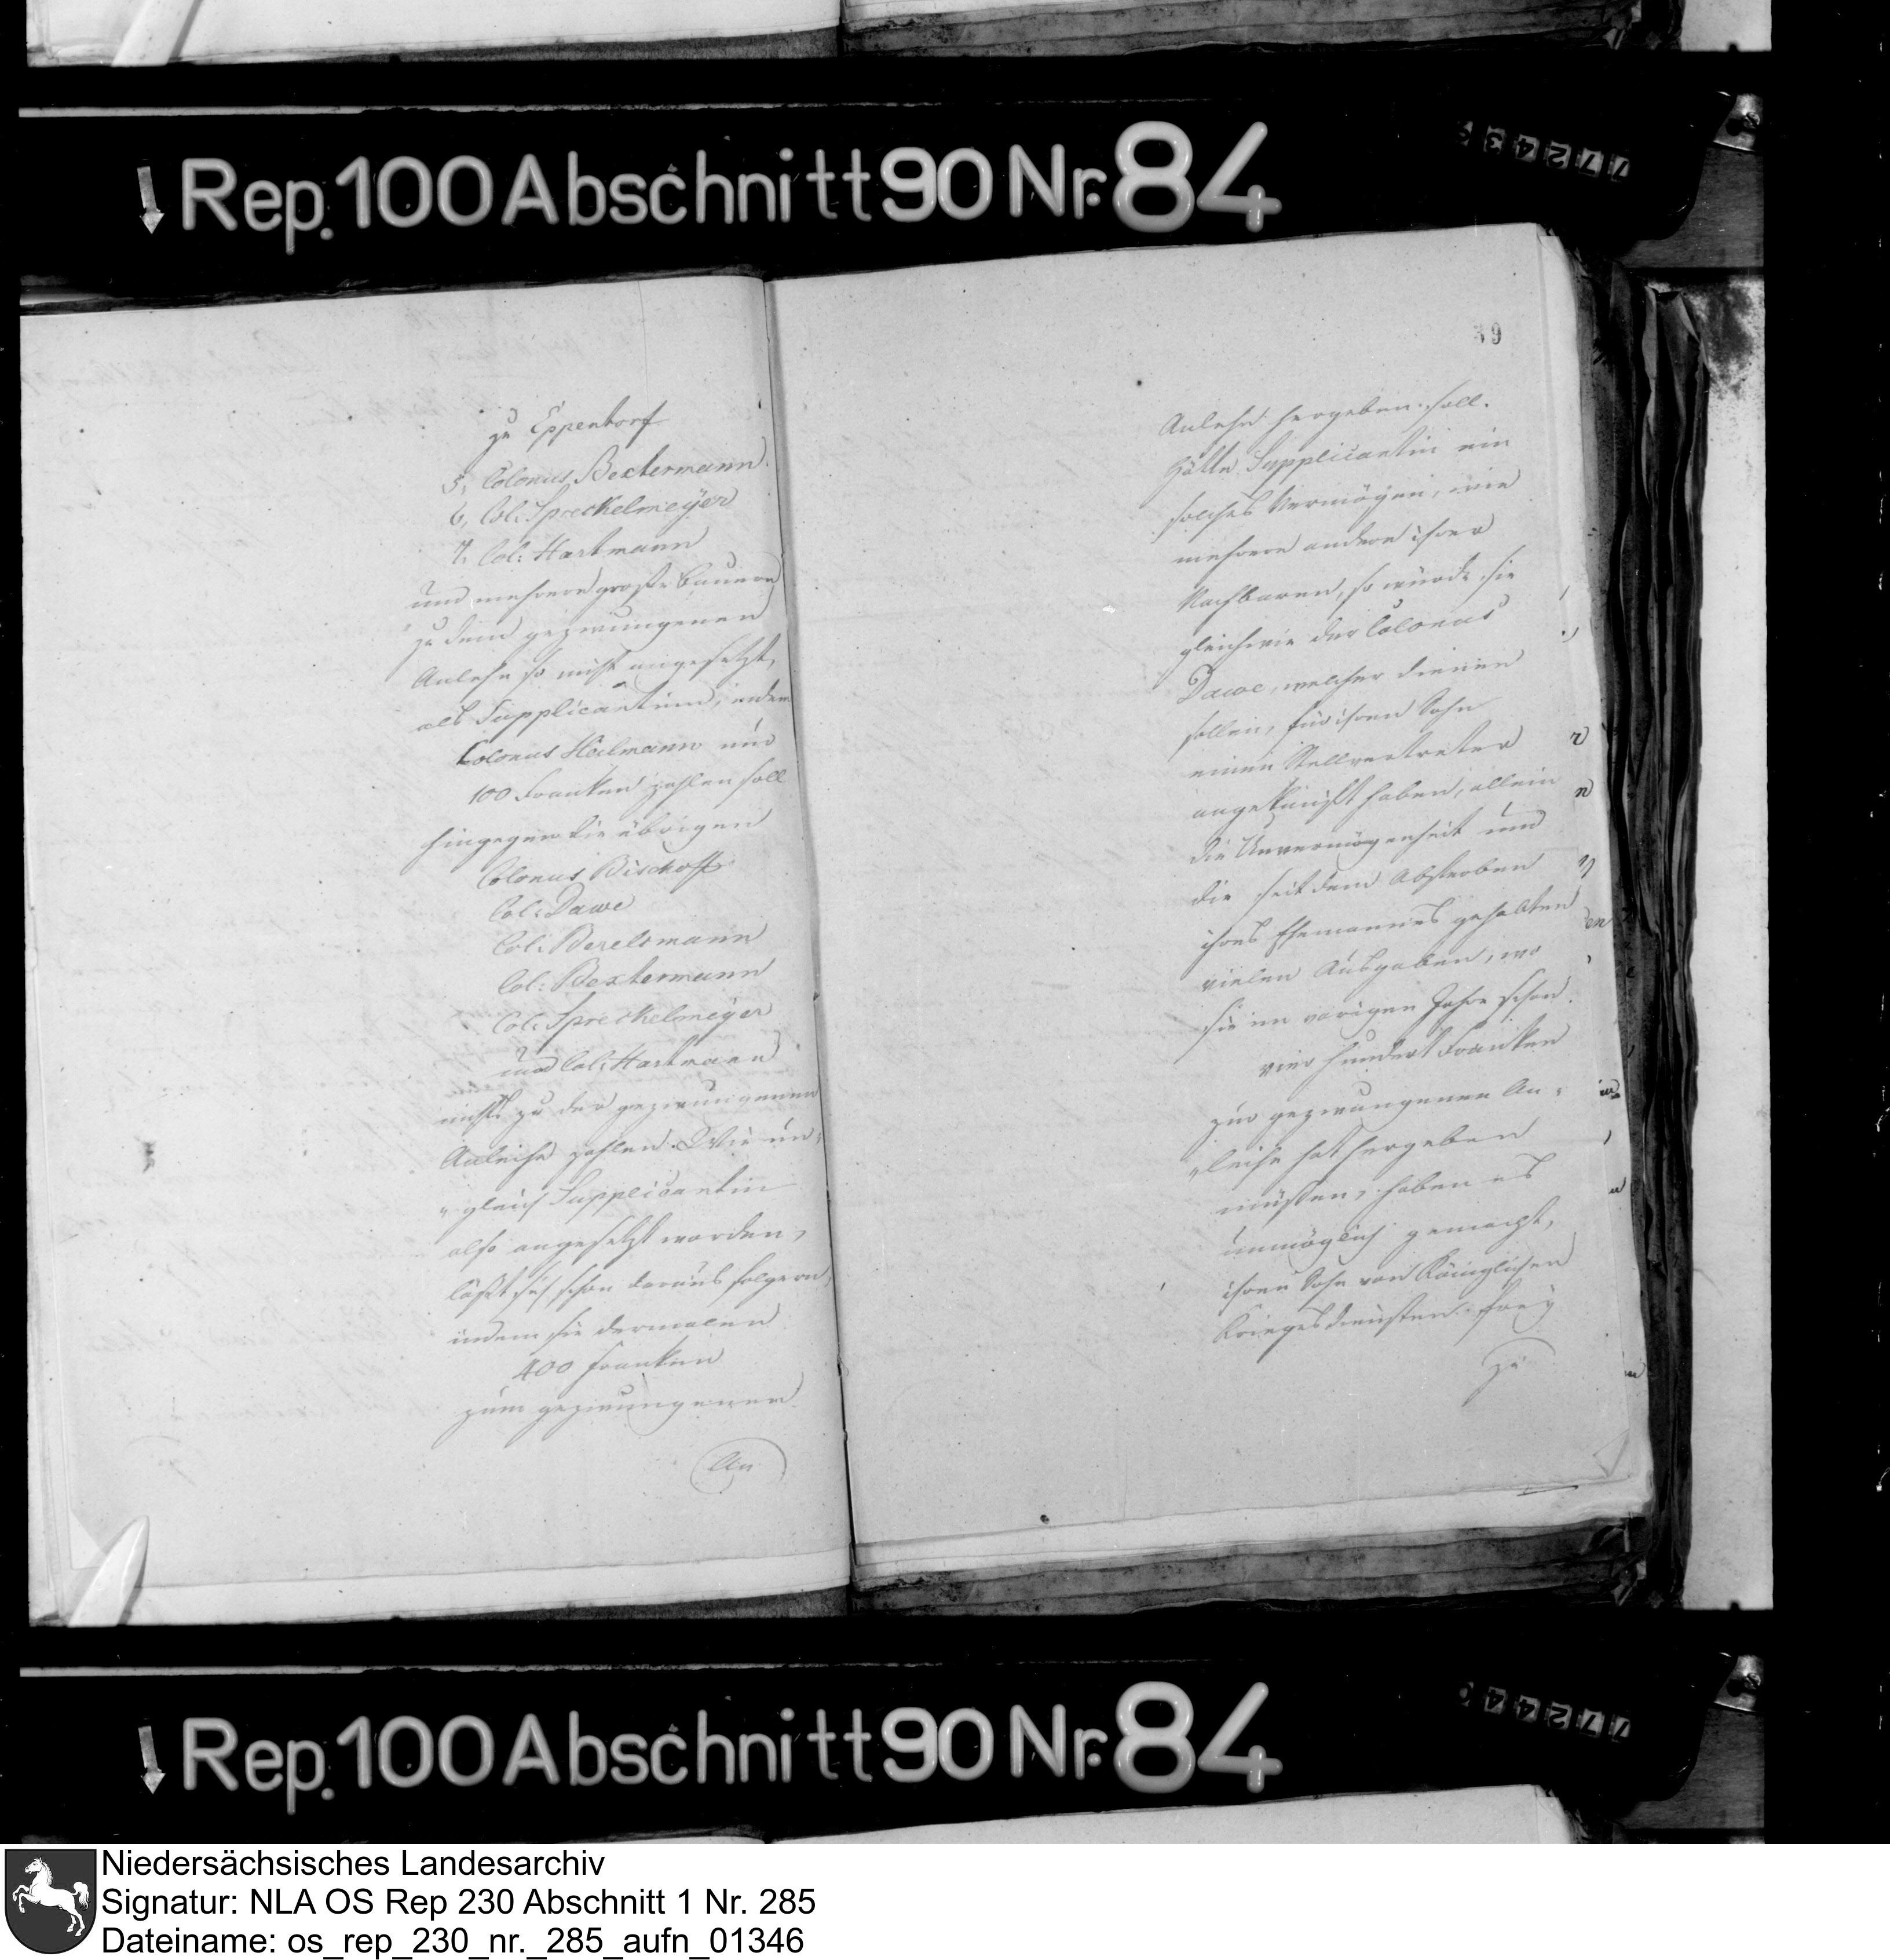 Rep. 100 Abschnitt 90 Nr. 84
77243
zu Eppendorf
5, Colonus Bextermann
6, Col: Spreckelmeÿer
7, Col: Hartmann
und mehrere große Bauern
zu dem gezwungenen
Anlehn so nicht angesetzt,
als Supplicantinn, indem
Colonus Heilmann nur
100 Franken zahlen soll
hingegen die übrigen
Colonus Bischoff
Col: Dawe
Col: Berelsmann
Col: Bextermann
Col: Spreckelmeÿer
und Col: Hartmann
nichts zu der gezwungenen
Anleihe zahlen. Wie un-
"gleich Supplicantin
also angesetzt worden,
läßt sich schon daraus folgern,
indem sie dermalen
400 Franken
zum gezwungenen
An
39
Anlehn hergeben soll.
Hätte Supplicantin ein
solches Vermögen, wie
mehrere andere ihrer
Nachbaren, so würde sie
gleichwie der Colonus
Dawe, welcher dienen
sollen, für ihren Sohn
einen Stellvertreter
angekauft haben, allein
die Unvermögenheit und
die seit dem Absterben
ihres Ehemannes gehabten
vielen Ausgaben, wo
sie im vorigen Jahre schon
vier hundert Franken
zur gezwungenen An-
"leihe hat hergeben
müßen, haben es
unmöglich gemacht,
ihren Sohn von Königlichen
Kriegesdiensten freÿ
zu
Rep. 100 Abschnitt 90 Nr. 84
77244
Niedersächsisches Landesarchiv
Signatur: NLA OS Rep 230 Abschnitt 1 Nr. 285
Dateiname: os_rep_230_nr._285_aufn_01346